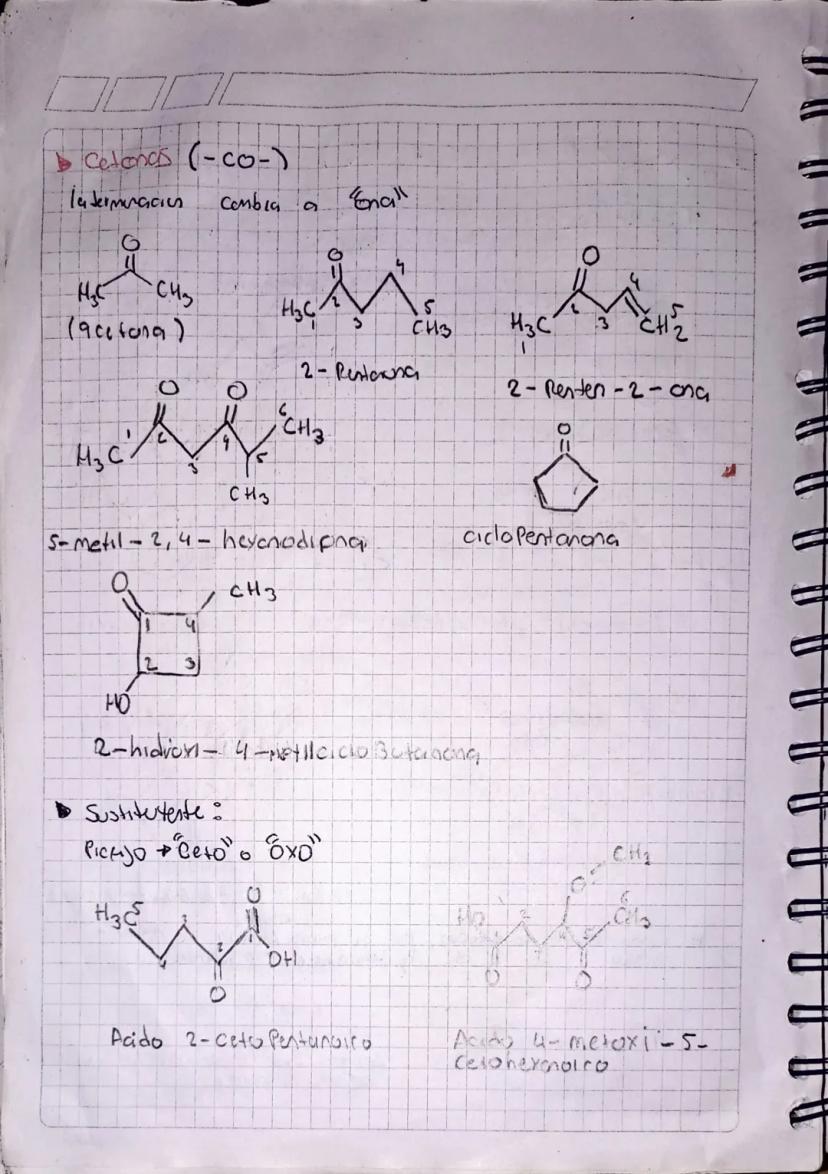 Cetonas (-CO-)
la terminacion cambia a "ona"
O
H3C CH3
(acetona)
O
H3C 1 2 3 4 5 CH3
2-Pentanona
O
H3C 1 2 3 4 5 CH2
2-Penten-2-ona
O O
H3C 1 2 3 4 5 6 CH3
CH3
5-metil-2,4-hexenodiona
O
cicloPentanona
O CH3
1 4
2 3
HO
2-hidroxi-4-metilcicloButanona
Sustituyente:
"Ceto" o "Oxo"
H3C 5 4 3 2 1 O
OH
O
Acido 2-cetoPentanoico
O CH3
HO 1 2 3 4 5 6 CH3
O O
Acido 4-metoxi-5-
cetohexanoico